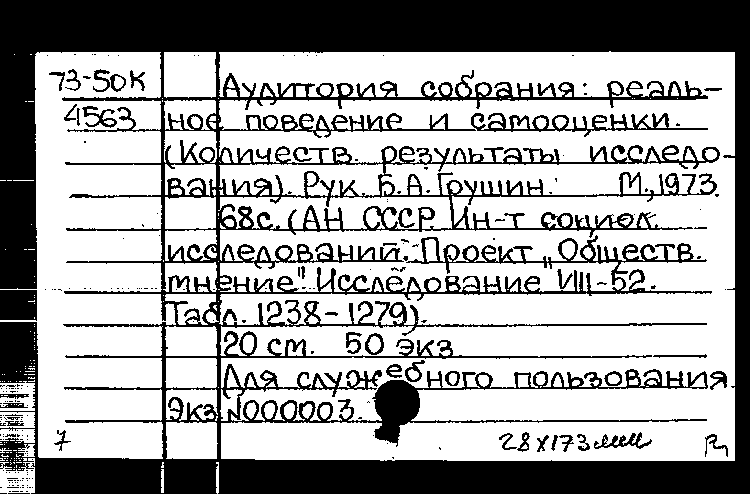 73-50К Аудитория собрания: реаль-
4563 ное поведение и самооценки.
(Количеств. результаты исследо-
вания). Рук. Б.А.Грушин. М.,1973.
68с. (АН СССР. Ин-т социол.
исследований. Проект „Обществ.
мнение". Исследование VIII-52.
Табл. 1238-1279).
20 см. 50 экз.
Для служебного пользования.
Экз.N000003.
7 28 X 173